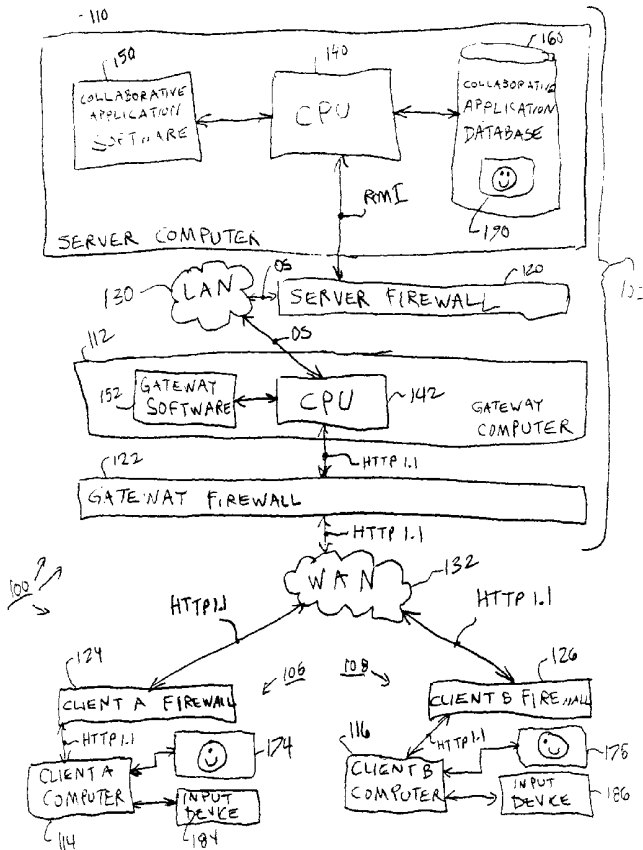 110
150
COLLABORATIVE
APPLICATION
SOFTWARE
140
CPU
160
COLLABORATIVE
APPLICATION
DATABASE
190
RMI
SERVER COMPUTER
130
LAN
OS
120
SERVER FIREWALL
OS
112
152
GATEWAY
SOFTWARE
CPU
142
GATEWAY
COMPUTER
HTTP 1.1
122
GATEWAY FIREWALL
HTTP 1.1
WAN
132
100
HTTP 1.1
HTTP 1.1
124
CLIENT A FIREWALL
106
108
126
CLIENT B FIREWALL
HTTP 1.1
174
CLIENT A
COMPUTER
114
INPUT
DEVICE
184
116
HTTP 1.1
CLIENT B
COMPUTER
INPUT
DEVICE
186